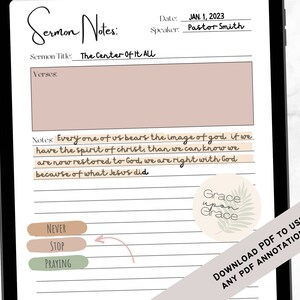 Sermon Notes:
Date: JAN 1, 2023
Speaker: Pastor Smith
Sermon Title: The Center Of It All
Verses:
Notes: Every one of us bears the image of god if we
have the spirit of christ, than we can know we
are now restored to God, we are right with God
because of what Jesus did
Grace
upon
Grace
Never
Stop
Praying
DOWNLOAD PDF TO USE
ANY PDF ANNOTATION